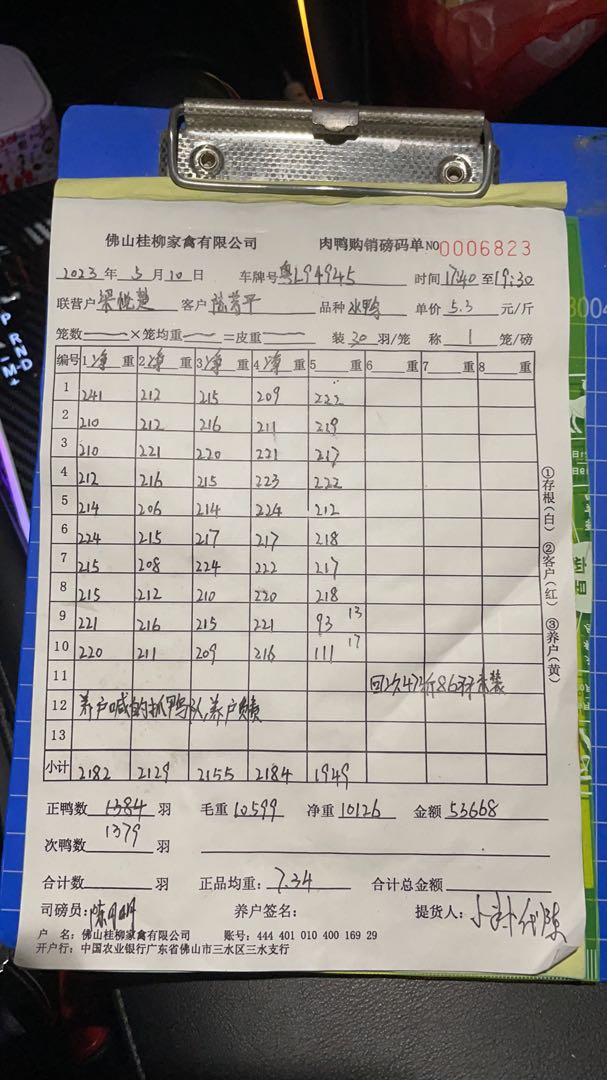 佛山桂柳家禽有限公司 肉鸭购销磅码单 NO 0006823
2023年5月10日 车牌号 粤L94945 时间 17:40 至 19:30
联营户 客户 品种 水鸭 单价 5.3 元/斤
笼数 ×笼均重 =皮重 装 30 羽/笼 称 1 笼/磅
编号 1 净 重 2 净 重 3 净 重 4 净 重 5 重 6 重 7 重 8 重
1 241 212 215 209 222
2 210 212 216 211 219
3 210 221 220 221 217
4 212 216 215 223 222
5 214 206 214 224 212
6 224 215 217 217 218
7 215 208 224 222 217
8 215 212 210 220 218
9 221 216 215 221 93 13
10 220 211 209 216 111 17
11 473斤86羽未装
12 养户喊的抓鸭队,养户负责
13
小计 2182 2129 2155 2184 1949
正鸭数 1384 羽 毛重 10599 净重 10126 金额 53668
1379
次鸭数 羽
合计数 羽 正品均重: 7.34 合计总金额
司磅员: 养户签名: 提货人:
户 名: 佛山桂柳家禽有限公司 账号: 444 401 010 400 169 29
开户行: 中国农业银行广东省佛山市三水区三水支行
①存根(白) ②客户(红) ③养户(黄)